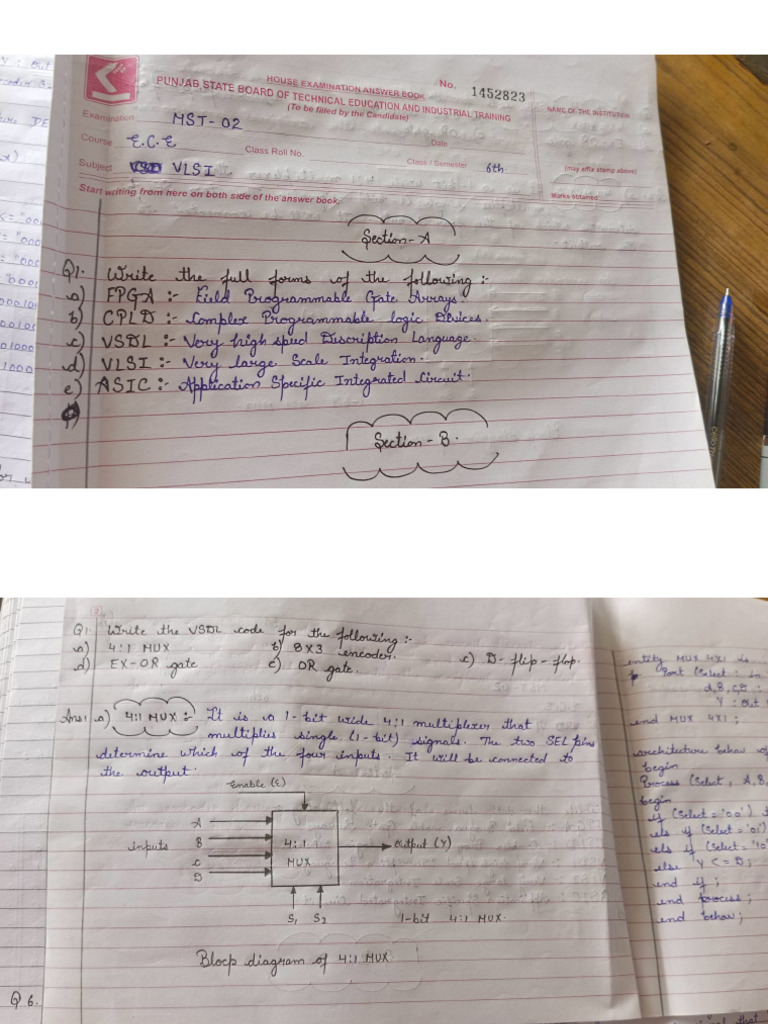 HOUSE EXAMINATION ANSWER BOOK
No. 1452823
PUNJAB STATE BOARD OF TECHNICAL EDUCATION AND INDUSTRIAL TRAINING
(To be filled by the Candidate)
NAME OF THE INSTITUTION
Examination MST-02
Date
Course E.C.E
Class Roll No.
Class / Semester 6th
(may affix stamp above)
Subject VLSI
Marks obtained
Start writing from here on both side of the answer book.
Section-A
Q1. Write the full forms of the following :-
a) FPGA :- Field Programmable Gate Arrays.
b) CPLD :- Complex Programmable logic Devices.
c) VSDL :- Very high speed Discription Language.
d) VLSI :- Very large Scale Integration.
e) ASIC :- Application Specific Integrated Circuit.
Section-B.
(2)
Q1. Write the VSDL code for the following :-
a) 4:1 MUX b) 8X3 encoder. c) D-flip-flop.
d) EX-OR gate e) OR gate.
Ans:1 a) 4:1 MUX :- It is a 1-bit wide 4:1 multiplexer that
multiplies single (1-bit) signals. The two SEL pins
determine which of the four inputs. It will be connected to
the output.
Enable (E)
A
B
inputs
C
D
4:1
MUX
output (Y)
S1 S2
1-bit 4:1 MUX.
Blocp diagram of 4:1 MUX
Q 6.
entity MUX 4X1 is
Port (Select : in
A,B,C,D :
Y : Out
end MUX 4X1;
architecture behav of
begin
Process (Select, A,B,
begin
if (Select='00')
els if (Select='01'
els if (Select='10'
else Y <= D;
end if;
end process;
end behav;